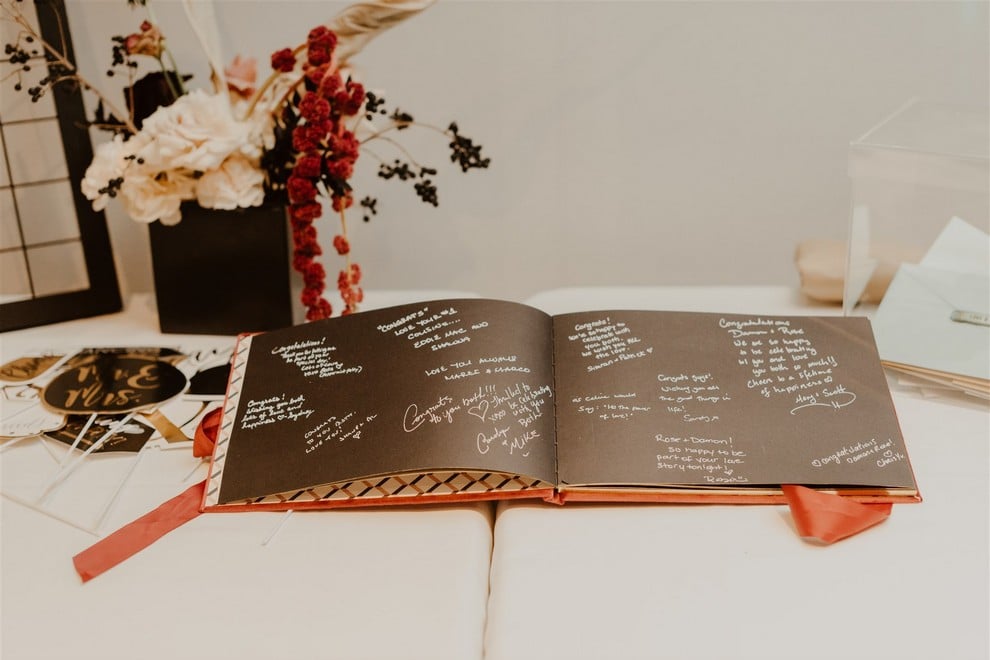 Mr & Mrs.
Congratulations!
"CONGRATS"
LOVE YOUR #1
COUSINS...
EDDIE MAC AND
LOVE YOU ALWAYS
MAREE & MARCO
Congrats!
Wishing you both
lots of love and
happiness
CONGRATS
TO YOU BOTH.
LOVE YOU!
Congrats!!!
To you both!!
Thrilled to
be celebrating
with you
Both!
XOXO
MIKE
Congrats!
We're so happy to
celebrate with
you both.
We wish you all
the love.
Simon + Patrick
as Celine would
say: "It's the power
of love!"
Congrats guys!
Wishing you all
the good things in
life!
Rose + Damon!
so happy to be
part of your love
story tonight!
Congratulations
Damon & Rose
We are so happy
to be celebrating
with you and love
you both so much!!
Cheers to a lifetime
of happiness
Congratulations
Damon + Rose!